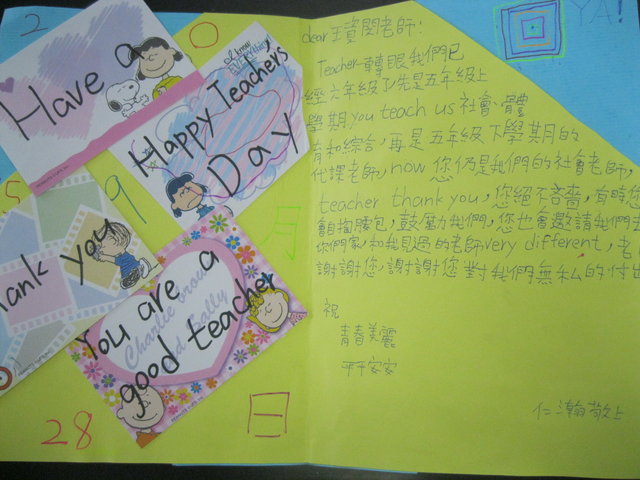 2
0
5
9
月
28
日
Have a
Happy Teachers
Day
I know
EVERYthing!
Thank you
You are a
good teacher
YA!
dear 王資閔老師:
Teacher 轉眼我們已
經六年級了,先是五年級上
學期 you teach us 社會、體
育和綜合,再是五年級下學期的
代課老師,now 您仍是我們的社會老師,
teacher thank you,您絕不吝嗇,有時您
會自掏腰包,鼓勵我們,您也會邀請我們去
你們家,和我見過的老師very different,老
謝謝您,謝謝您對我們無私的付出
祝
青春美麗
平平安安
仁瀚敬上